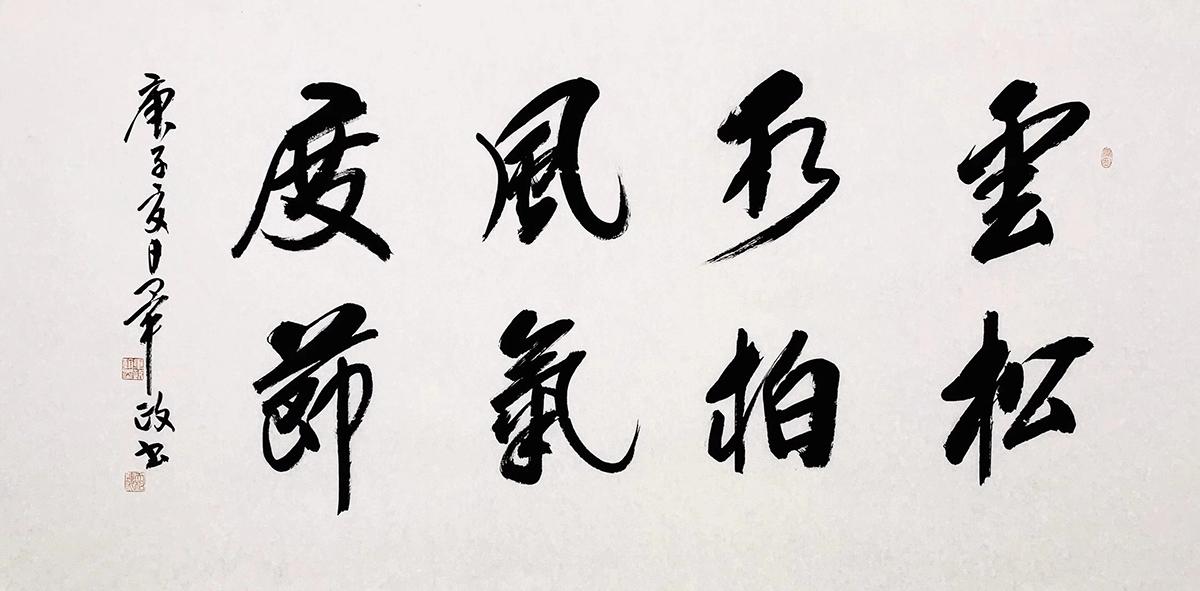 雲水風度
松柏氣節
庚子夏日畢政书